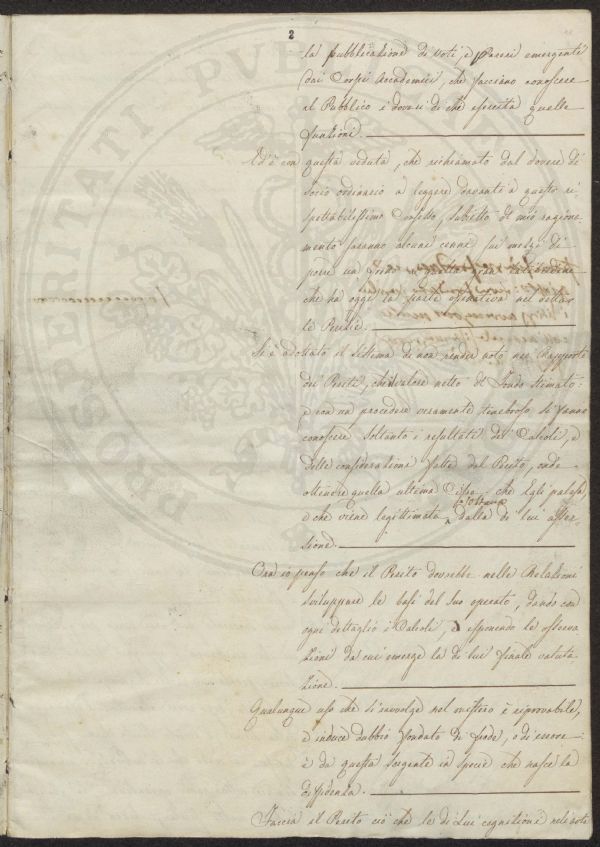 2
la pubblicazione di voti, e Pareri emergenti
dai Corpi Accademici, che facciano conoscere
al Pubblico i doveri di chi esercita quelle
funzioni.
Ed è con questa veduta, che richiamato dal dovere di
socio ordinario a leggere davanti a questo ri-
spettabilissimo Consesso, subietto del mio ragiona-
mento saranno alcuni cenni sui mezzi di
porre un freno
che ha oggi la parte operativa nel detta-
le Perizie.
Si è adottato il sistema di non render noto nei Rapporti
dei Periti, che il valore netto del Fondo stimato:
e con un procedere veramente tenebroso si fanno
conoscere soltanto i resultati dei Calcoli, e
delle considerazioni fatte dal Perito, onde
ottenere quella ultima Cifra che Egli palesa,
e che viene legittimata soltanto dalla di lui asser-
zione.
Ora io penso che il Perito dovrebbe nelle Relazioni
sviluppare le basi del suo operato, dando con
ogni dettaglio i Calcoli, e esponendo le osserva
zioni da cui emerge la di lui finale valuta
zione.
Qualunque uso che si ravvolge nel mistero è riprovabile,
e induce dubbio fondato di frode, o di errore
è da questa sorgente in specie che nasce la
diffidenza.
Faccia il Perito ciò che le di Lui cognizioni
PROSPERITATI PVBL